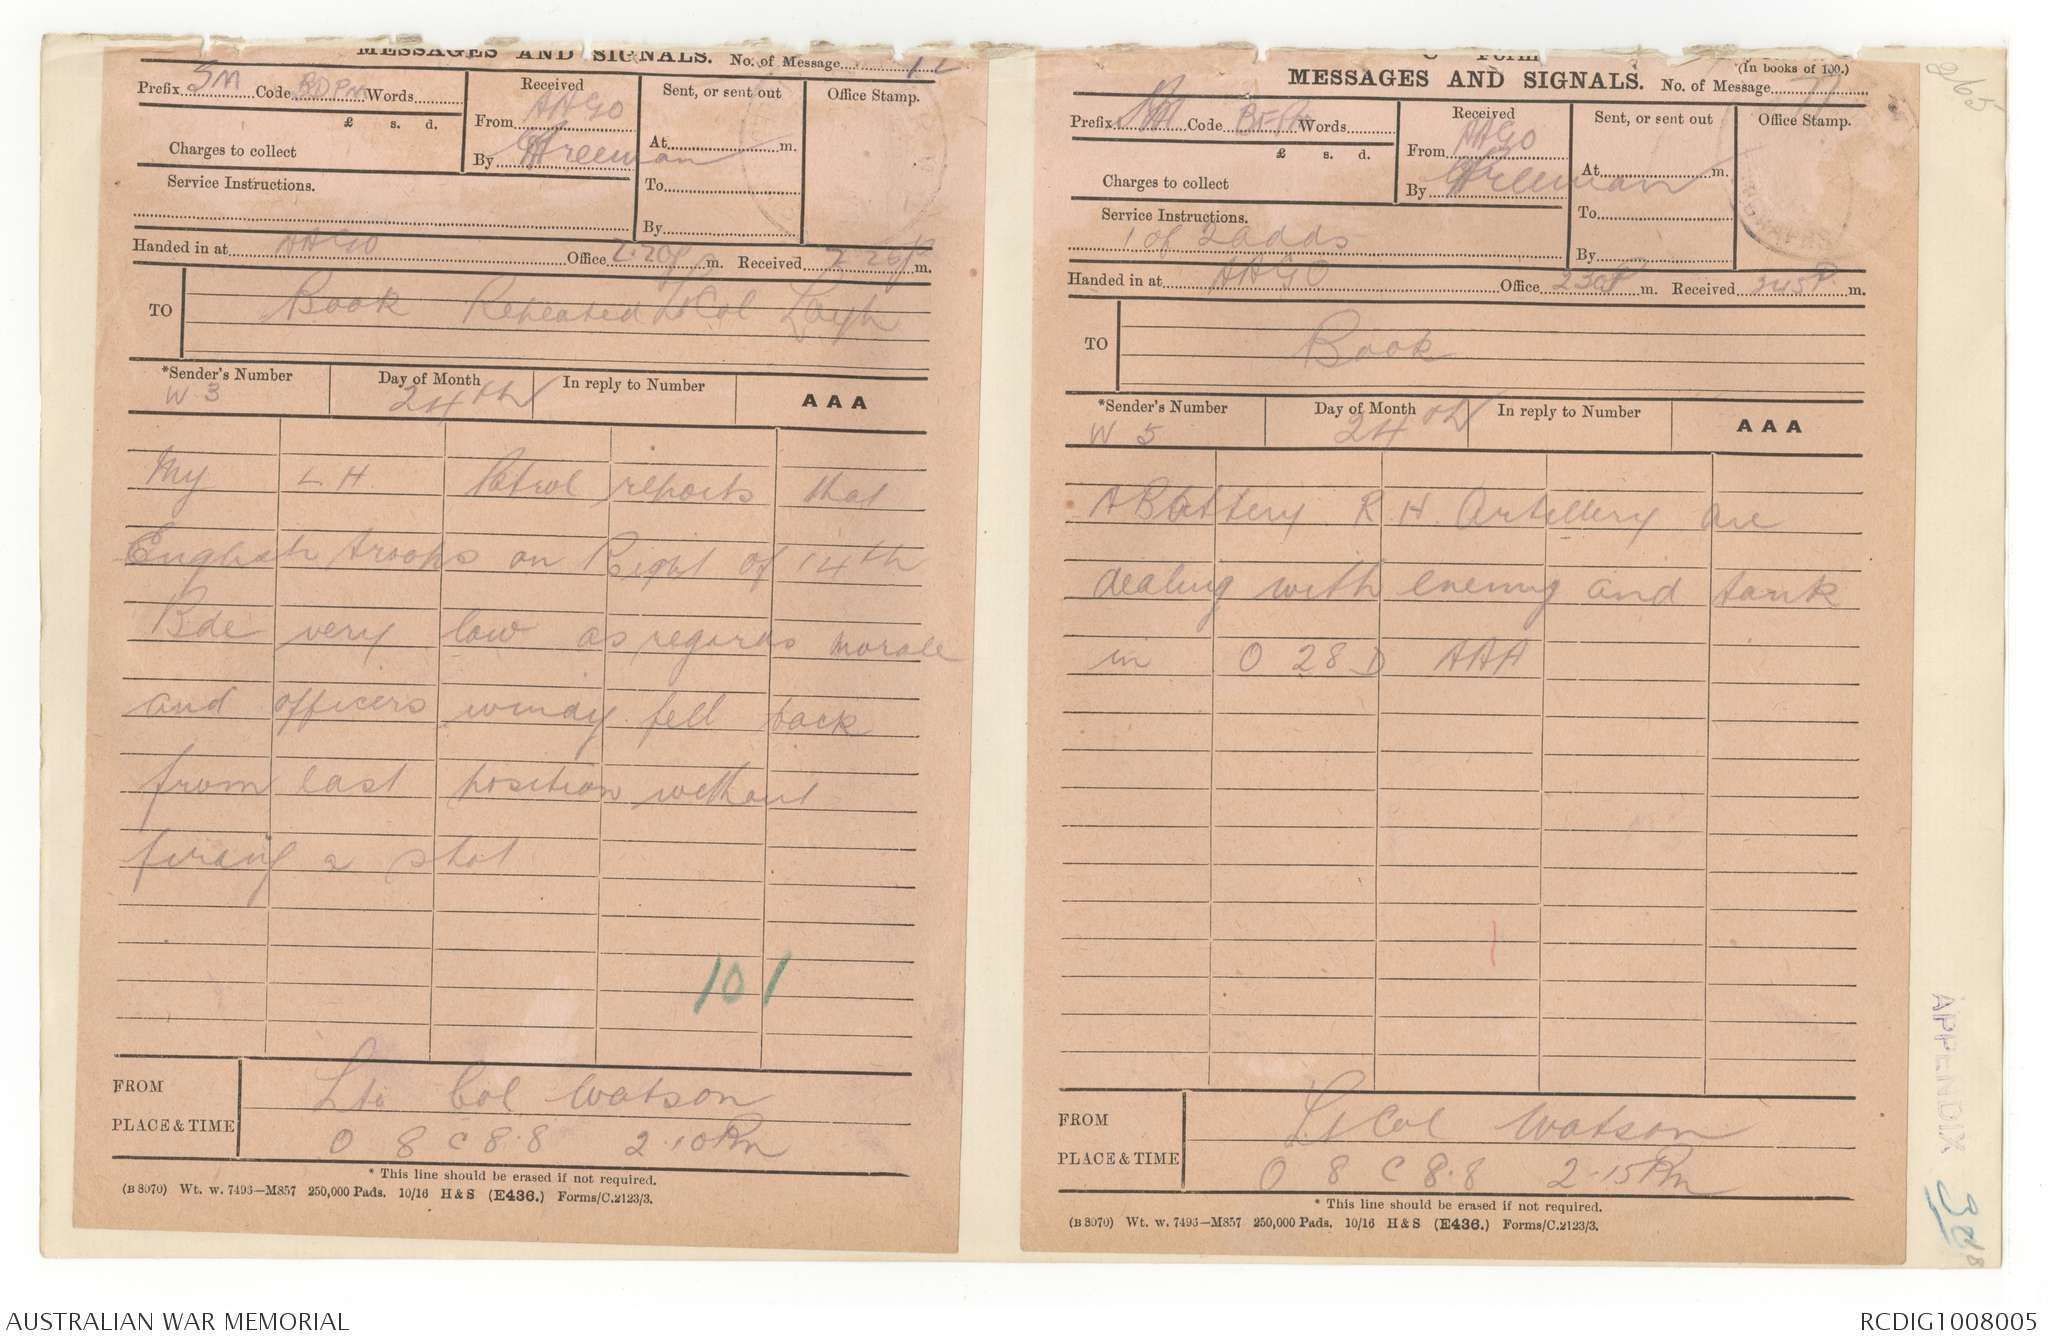 MESSAGES AND SIGNALS. No. of Message 12
Prefix SM Code BDPM Words
£ s. d.
Charges to collect
Service Instructions.
Received
From AAGO
By Freeman
Sent, or sent out
At m.
To
By
Office Stamp.
Handed in at AAGO Office 2.20p m. Received 2 26p m.
TO Book Repeated Lt Col Leigh
*Sender's Number W 3
Day of Month 24th
In reply to Number
AAA
My L H. Patrol reports that
English troops on Right of 14th
Bde very low as regards morale
and officers windy fell back
from last position without
firing a shot
101
FROM Lt. Col Watson
PLACE & TIME O 8 C 8.8 2.10 Pm
* This line should be erased if not required.
(B 8070) Wt. w. 7493—M857 250,000 Pads. 10/16 H & S (E436.) Forms/C.2123/3.
"C" Form
(In books of 100.)
MESSAGES AND SIGNALS. No. of Message 11
Prefix Code Words
£ s. d.
Charges to collect
Service Instructions.
1 of 2 adds
Received
From AAGO
By Freeman
Sent, or sent out
At m.
To
By
Office Stamp.
Handed in at AAGO Office 230P m. Received 245P m.
TO Book
*Sender's Number W 5
Day of Month 24th
In reply to Number
AAA
A Battery R. H. Artillery are
dealing with enemy and tank
in O 28 D AAA
FROM Lt Col Watson
PLACE & TIME O 8 C 8.8 2.15 Pm
* This line should be erased if not required.
(B 8070) Wt. w. 7493—M857 250,000 Pads. 10/16 H & S (E436.) Forms/C.2123/3.
265
APPENDIX 38
AUSTRALIAN WAR MEMORIAL
RCDIG1008005